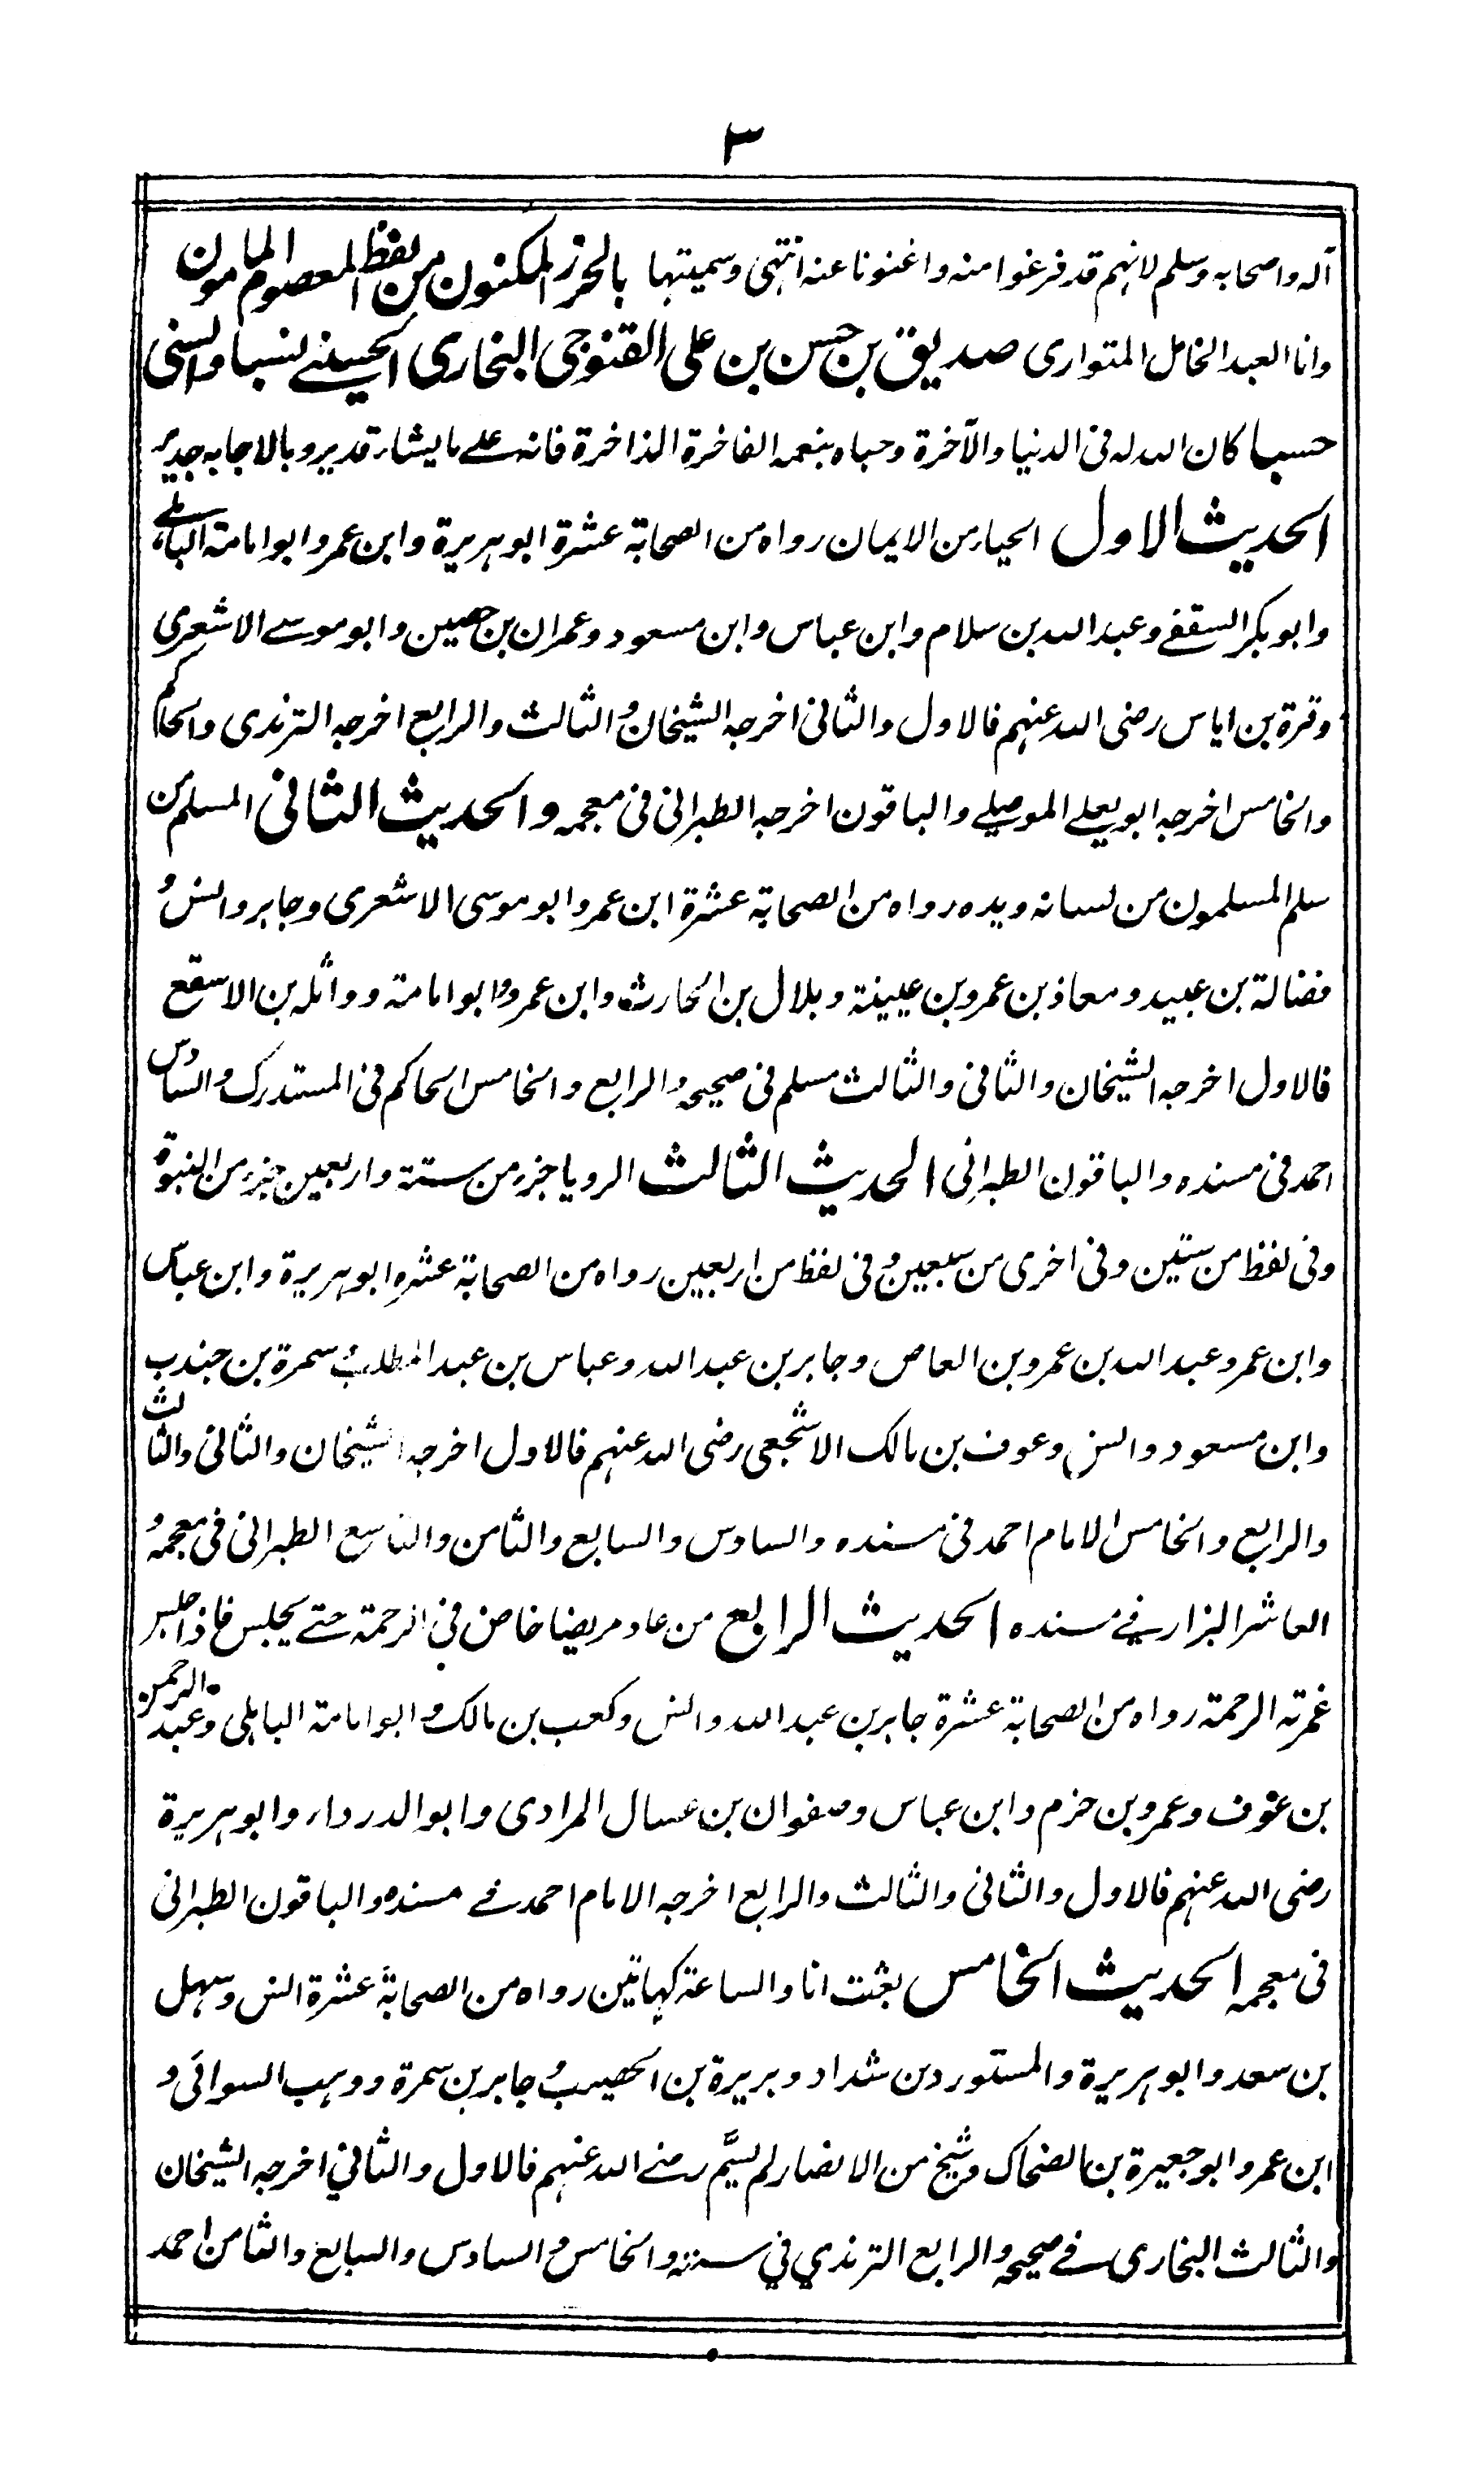 ٣
آله واصحابه وسلم لانهم قد فرغوا منه واغنونا عنه انتهى وسميتها بالحرز المكنون من لفظ المعصوم المامون
وانا العبد الخامل المتوارى صديق بن حسن بن على القنوجى البخارى الحسينے نسبا والسنى
حسبا كان الله له فى الدنيا والآخرة وحباه بنعمه الفاخرة الذاخرة فانه علے ما يشاء قدير وبالاجابه جدير
الحديث الاول الحياء من الايمان رواه من الصحابة عشرة ابو هريرة وابن عمر وابو امامة الباهلے
وابو بكر السقفے وعبد الله بن سلام وابن عباس وابن مسعود وعمران بن حصين وابو موسے الاشعرى
وقرة بن اياس رضى الله عنهم فالاول والثانى اخرجه الشيخان والثالث والرابع اخرجه الترمذى والحاكم
والخامس اخرجه ابو يعلے الموصلے والباقون اخرجه الطبرانى فى معجمه والحديث الثانى المسلم من
سلم المسلمون من لسانه ويده رواه من الصحابة عشرة ابن عمر وابو موسى الاشعرى وجابر وانس و
فضالة بن عبيد ومعاذ بن عمرو بن عيينة وبلال بن الحارث وابن عمرو وابو امامة وواثله بن الاسقع
فالاول اخرجه الشيخان والثانى والثالث مسلم فى صحيحه والرابع والخامس الحاكم فى المستدرك والسادس
احمد فى مسنده والباقون الطبرانى الحديث الثالث الرويا جزء من ستة واربعين جزء من النبوة
وفى لفظ من ستين وفى اخرى من سبعين وفى لفظ من اربعين رواه من الصحابة عشره ابو هريرة وابن عباس
وابن عمر وعبد الله بن عمرو بن العاص وجابر بن عبد الله وعباس بن عبد المطلب وسمرة بن جندب
وابن مسعود وانس وعوف بن مالك الاشجعى رضى الله عنهم فالاول اخرجه الشيخان والثانى والثالث
والرابع والخامس الامام احمد فى مسنده والسادس والسابع والثامن والتاسع الطبرانى فى معجمه و
العاشر البزار فے مسنده الحديث الرابع من عاد مريضا خاض في الرحمة حتے يجلس فاذا جلس
غمرته الرحمة رواه من الصحابة عشرة جابر بن عبد الله وانس وكعب بن مالك وابو امامة الباهلى وعبد الرحمن
بن عوف وعمرو بن حزم وابن عباس وصفوان بن عسال المرادى وابو الدرداء وابو هريرة
رضى الله عنهم فالاول والثانى والثالث والرابع اخرجه الامام احمد فے مسنده والباقون الطبرانى
فى معجمه الحديث الخامس بعثت انا والساعة كهاتين رواه من الصحابة عشرة انس وسهل
بن سعد وابو هريرة والمستورد بن شداد وبريرة بن الحصيب وجابر بن سمرة ووهب السوائى و
ابن عمر وابو جعيرة بن الضحاك وشيخ من الانصار لم يسم رضے الله عنهم فالاول والثاني اخرجه الشيخان
والثالث البخارى فے صحيحه والرابع الترمذي في سننه والخامس والسادس والسابع والثامن احمد